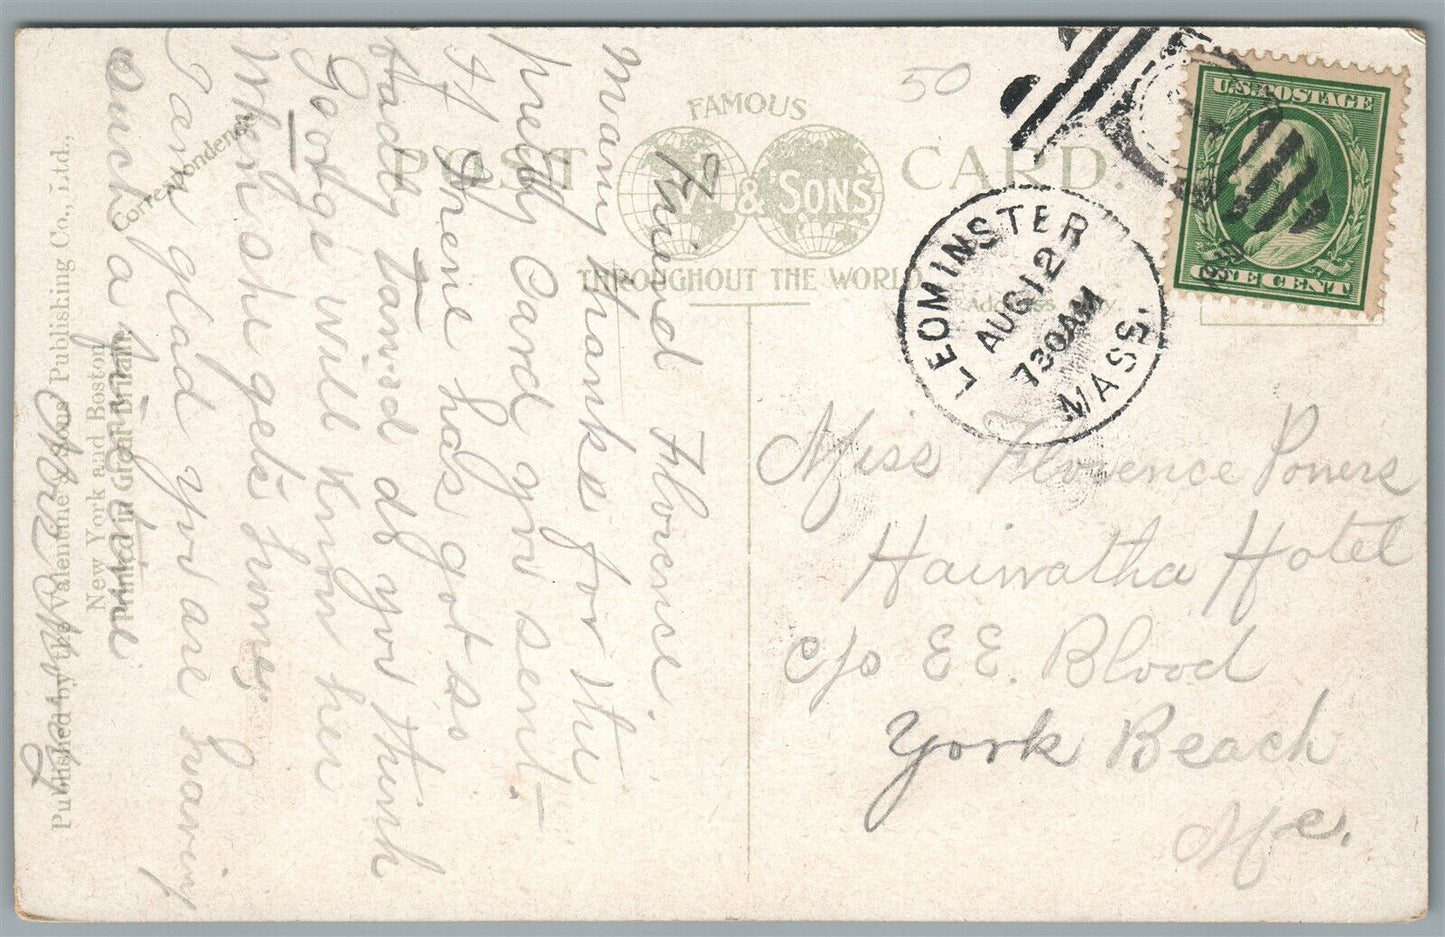 50
FAMOUS
POST CARD.
V. & SONS
THROUGHOUT THE WORLD
Correspondence
Address Only.
U.S. POSTAGE
ONE CENT
LEOMINSTER
AUG 12
730AM
MASS.
Miss Florence Powers
Haiwatha Hotel
c/o E E. Blood
York Beach
Me.
Friend Florence.
Many thanks for the
pretty Card you sent-
Irene has got so
tired do you think
George will know her
When she gets home,
glad you are having
such a time
Published by the Valentine & Sons Publishing Co., Ltd.,
New York and Boston
Printed in Great Britain.